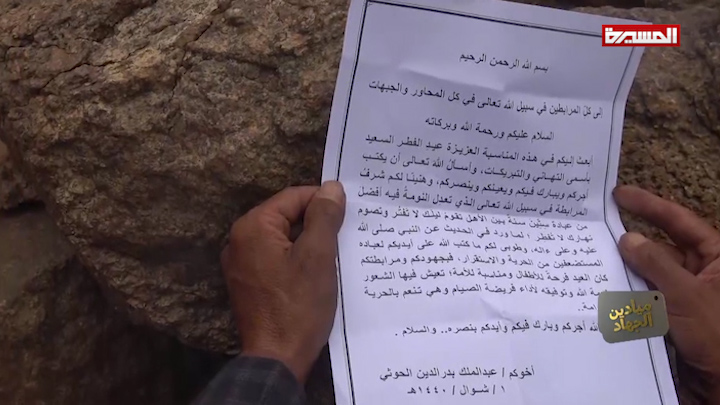 المسيرة
بسم الله الرحمن الرحيم
إلى كل المرابطين في سبيل الله تعالى في كل المحاور والجبهات
السلام عليكم ورحمة الله وبركاته
أبعث إليكم في هذه المناسبة العزيزة عيد الفطر السعيد
بأسمى التهاني والتبريكات، وأسأل الله تعالى أن يكتب
أجركم ويبارك فيكم ويعينكم وينصركم، وهنيئا لكم شرف
المرابطة في سبيل الله تعالى الذي تعدل النومة فيه أفضل
من عبادة ستين سنة بين الأهل تقوم ليلك لا تفتر وتصوم
نهارك لا تفطر؛ لما ورد في الحديث عن النبي صلى الله
عليه وعلى وآله، وطوبى لكم ما كتب الله على أيديكم لعباده
المستضعفين من الحرية والاستقرار، فبجهودكم ومرابطتكم
كان العيد فرحة للأطفال ومناسبة للأمة؛ تعيش فيها الشعور
الله وتوفيقه لأداء فريضة الصيام وهي تنعم بالحرية
الله أجركم وبارك فيكم وأيدكم بنصره.. والسلام .
أخوكم / عبدالملك بدرالدين الحوثي
١ / شوال / ١٤٤٠هـ
ميادين
الجهاد